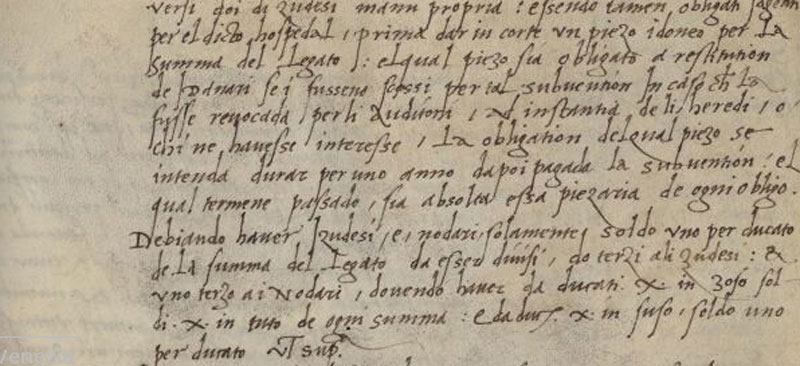 versi doi di zudesi manu propria : essendo tamen, obligati
per el dicto hospedal, prima dar in corte un piezo idoneo per La
summa del Legato : el qual piezo sia obligato a restitution
de Danari se i fusseno scossi per tal subvention In caso ch La
fusse revocada, per li Auditori, ad instantia de li heredi, o
chi ne havesse interesse, La obligation del qual piezo se
intenda durar per uno anno dapoi pagada la subvention : el
qual termene passado, sia absolta essa piezaria de ogni obligo.
Debiando haver I zudesi, e, nodari, solamente, soldo uno per ducato
de La summa del Legato da esser divisi, do terzi a li zudesi : &
uno terzo ai Nodari, dovendo haver da ducati .x. in zoso sol-
di .x. in tuto de ogni summa : e da duc. .x. in suso, soldo uno
per ducato ut sup.